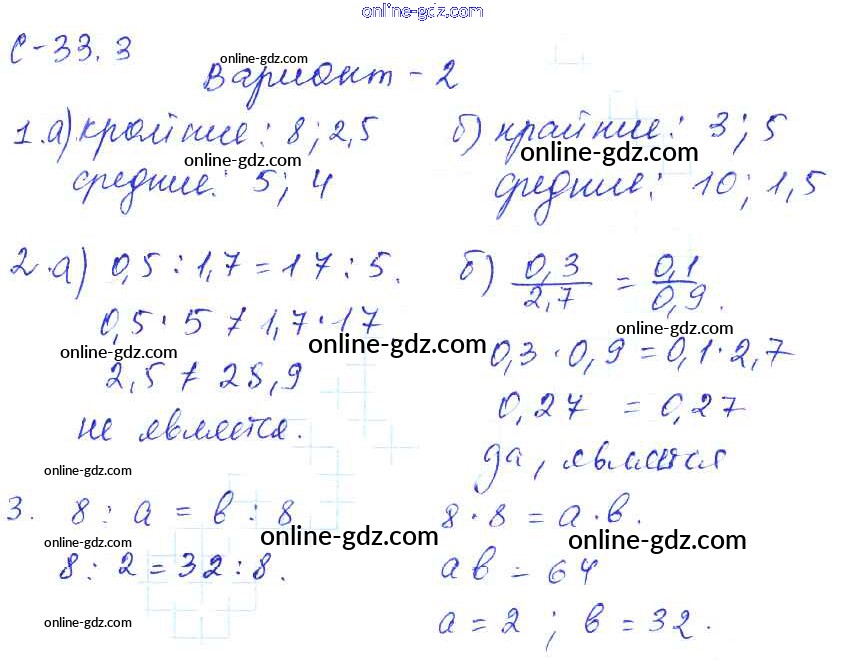 online-gdz.com
С-33.3
Вариант-2
1.а) крайние: 8; 2,5
средние: 5; 4
б) крайние: 3; 5
средние: 10; 1,5
2.а) 0,5 : 1,7 = 17 : 5.
0,5 · 5 ≠ 1,7 · 17
2,5 ≠ 28,9
не является.
б) 0,3/2,7 = 0,1/0,9.
0,3 · 0,9 = 0,1 · 2,7
0,27 = 0,27
да, является
3. 8 : а = в : 8
8 : 2 = 32 : 8.
8 · 8 = а · в.
ав = 64
а = 2 ; в = 32.
online-gdz.com
online-gdz.com
online-gdz.com
online-gdz.com
online-gdz.com
online-gdz.com
online-gdz.com
online-gdz.com
online-gdz.com
online-gdz.com
online-gdz.com
online-gdz.com